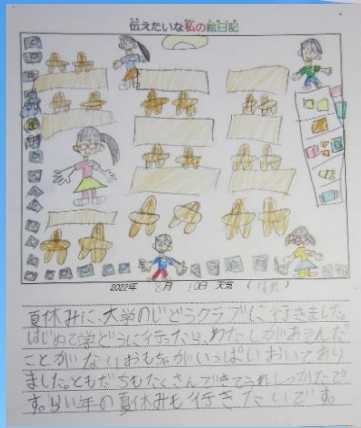 伝えたいな私の絵日記
2022年 8月 10日 天気 (晴れ)
夏休みに、大学のじどうクラブに行きました。
はじめて学どうに行ったら、わたしがあそんだ
ことがないおもちゃがいっぱいおいてあり
ました。ともだちもたくさんできてうれしかったで
す。らい年の夏休みも行きたいです。